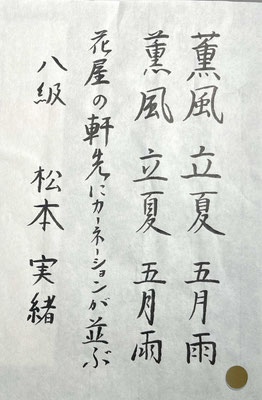 薫風 立夏 五月雨
薫風 立夏 五月雨
花屋の軒先にカーネーションが並ぶ
八級 松本実緒